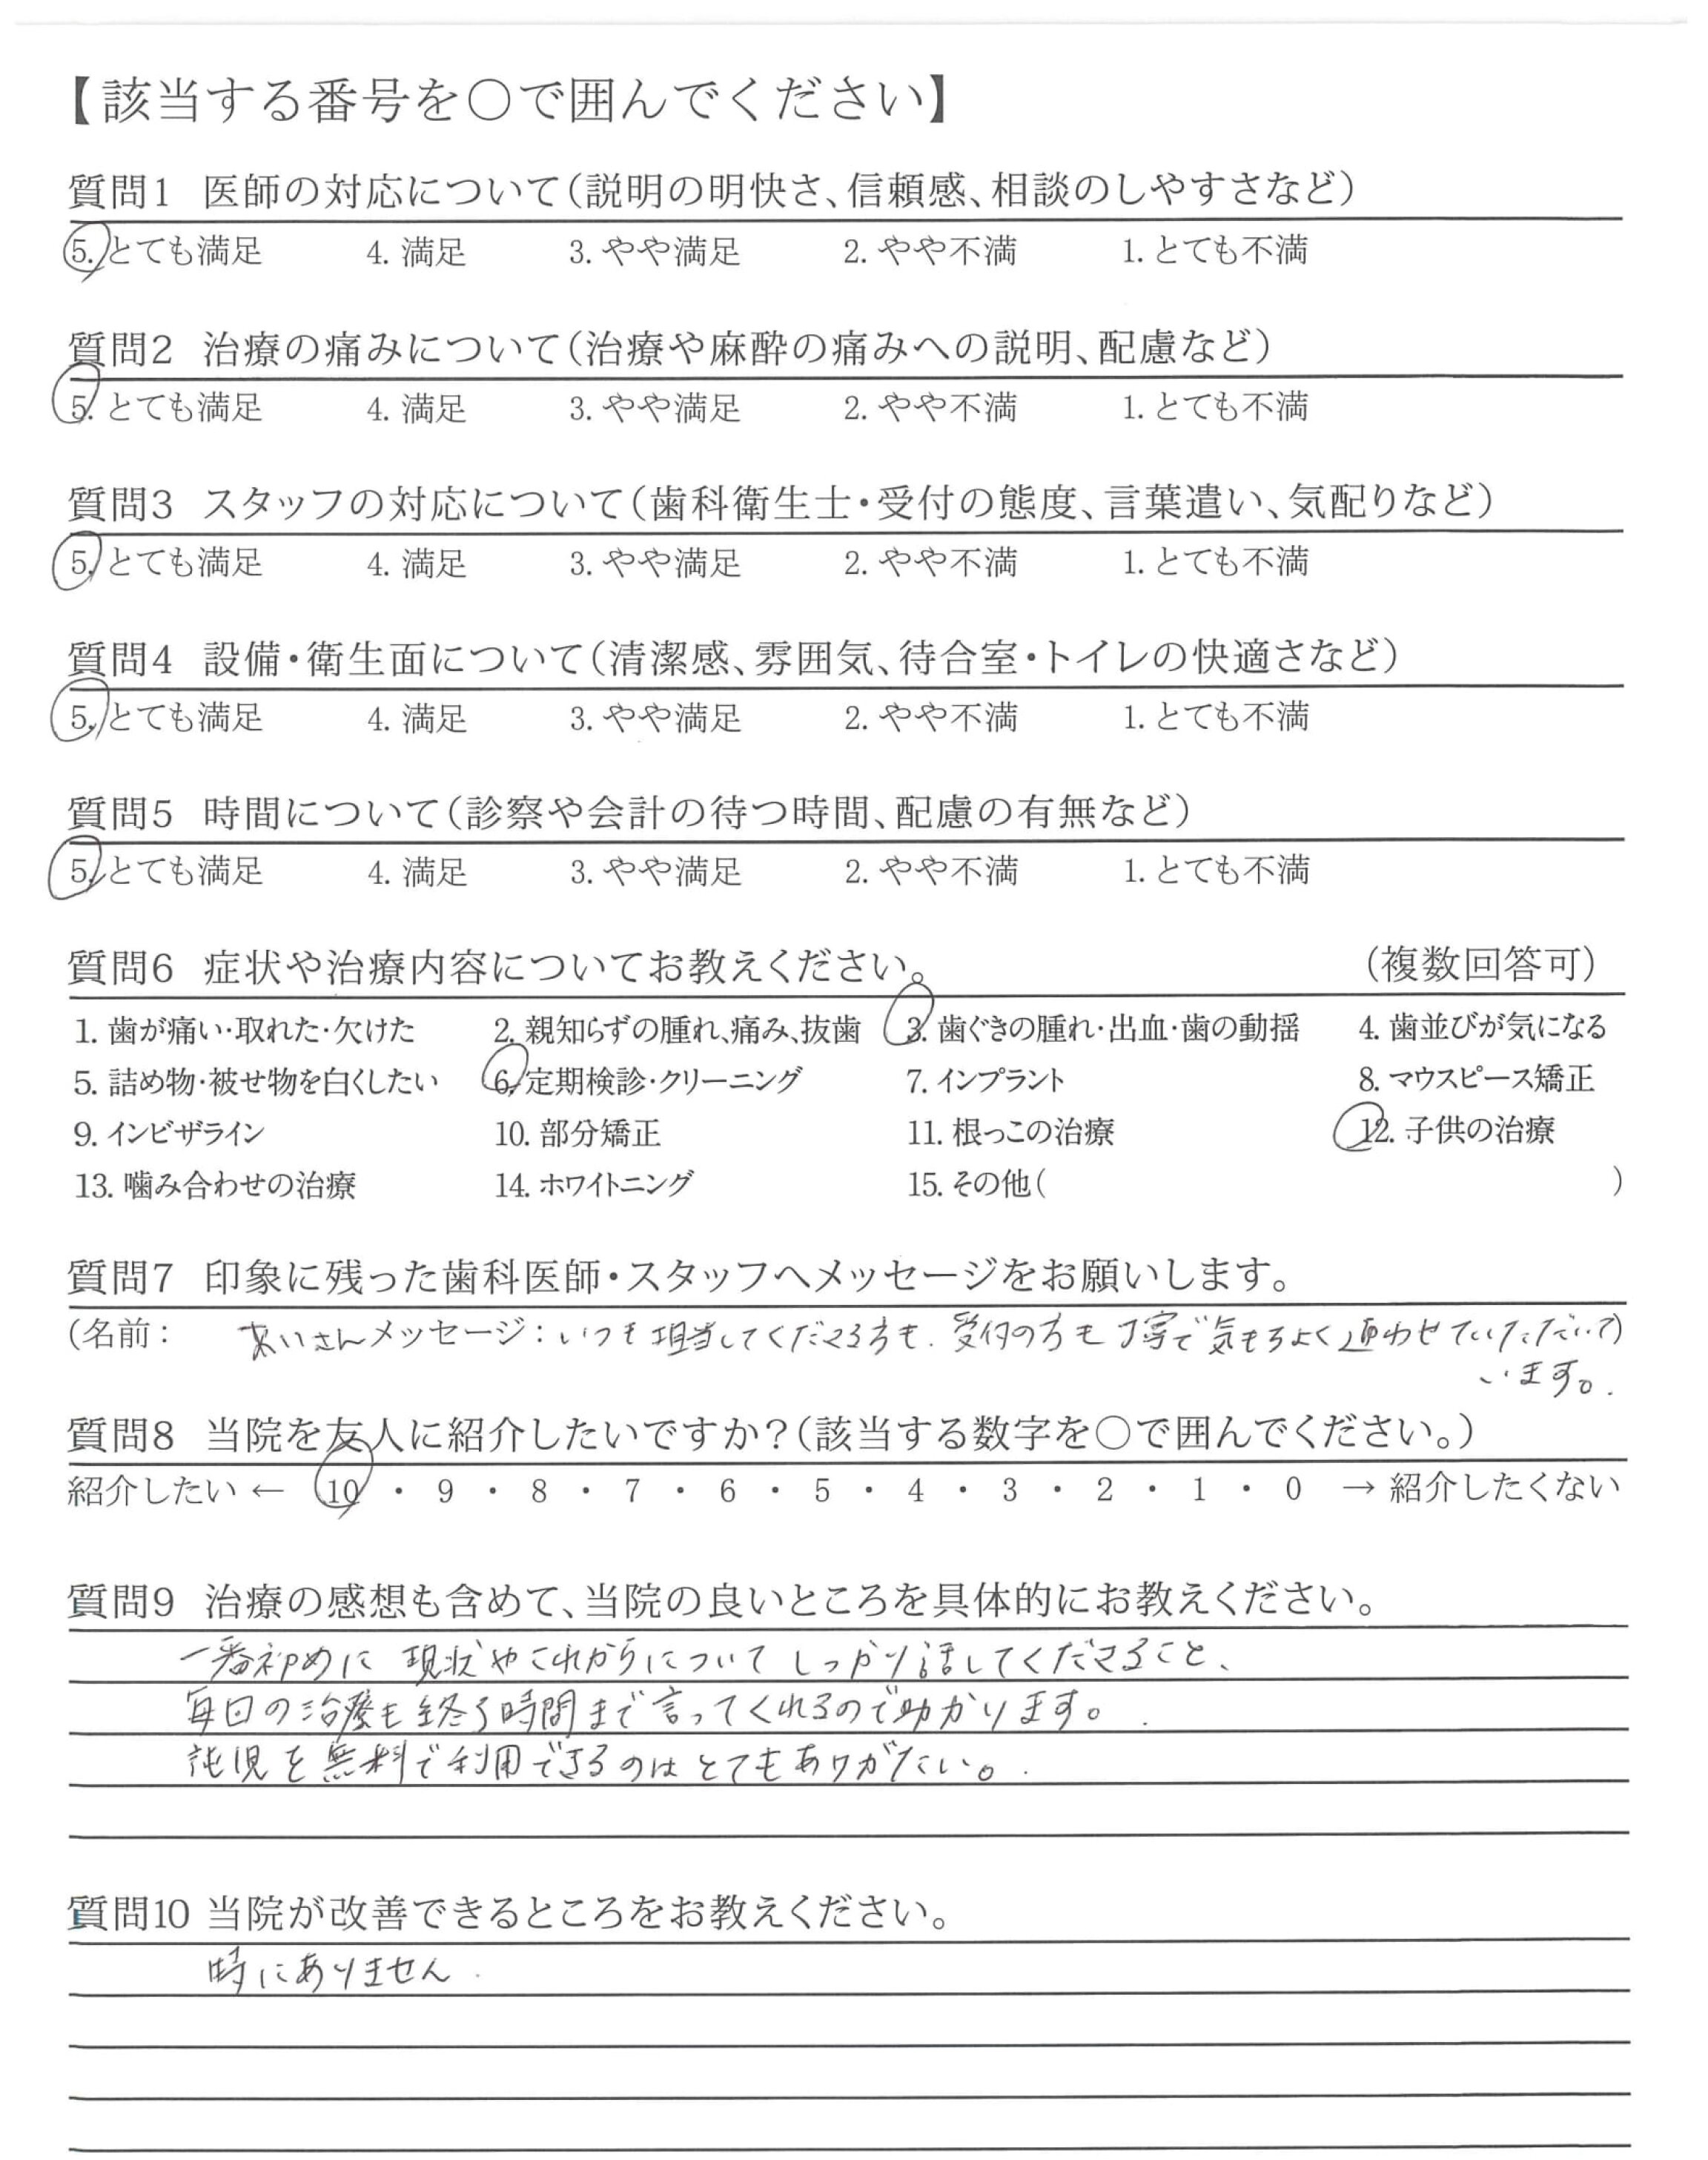 【該当する番号を○で囲んでください】
質問1 医師の対応について(説明の明快さ、信頼感、相談のしやすさなど)
5. とても満足 4. 満足 3. やや満足 2. やや不満 1. とても不満
質問2 治療の痛みについて(治療や麻酔の痛みへの説明、配慮など)
5. とても満足 4. 満足 3. やや満足 2. やや不満 1. とても不満
質問3 スタッフの対応について(歯科衛生士・受付の態度、言葉遣い、気配りなど)
5. とても満足 4. 満足 3. やや満足 2. やや不満 1. とても不満
質問4 設備・衛生面について(清潔感、雰囲気、待合室・トイレの快適さなど)
5. とても満足 4. 満足 3. やや満足 2. やや不満 1. とても不満
質問5 時間について(診察や会計の待つ時間、配慮の有無など)
5. とても満足 4. 満足 3. やや満足 2. やや不満 1. とても不満
質問6 症状や治療内容についてお教えください。 (複数回答可)
1. 歯が痛い・取れた・欠けた 2. 親知らずの腫れ、痛み、抜歯 3. 歯ぐきの腫れ・出血・歯の動揺 4. 歯並びが気になる
5. 詰め物・被せ物を白くしたい 6. 定期検診・クリーニング 7. インプラント 8. マウスピース矯正
9. インビザライン 10. 部分矯正 11. 根っこの治療 12. 子供の治療
13. 噛み合わせの治療 14. ホワイトニング 15. その他( )
質問7 印象に残った歯科医師・スタッフへメッセージをお願いします。
(名前: さんメッセージ:いつも担当してくださる方も、受付の方も丁寧で気もちよく通わせていただいて)
います。
質問8 当院を友人に紹介したいですか?(該当する数字を○で囲んでください。)
紹介したい ← 10 ・ 9 ・ 8 ・ 7 ・ 6 ・ 5 ・ 4 ・ 3 ・ 2 ・ 1 ・ 0 → 紹介したくない
質問9 治療の感想も含めて、当院の良いところを具体的にお教えください。
一番初めに 現状やこれからについてしっかり話してくださること、
毎日の治療も終る時間まで言ってくれるので助かります。
託児を無料で利用できるのはとてもありがたい。
質問10 当院が改善できるところをお教えください。
特にありません